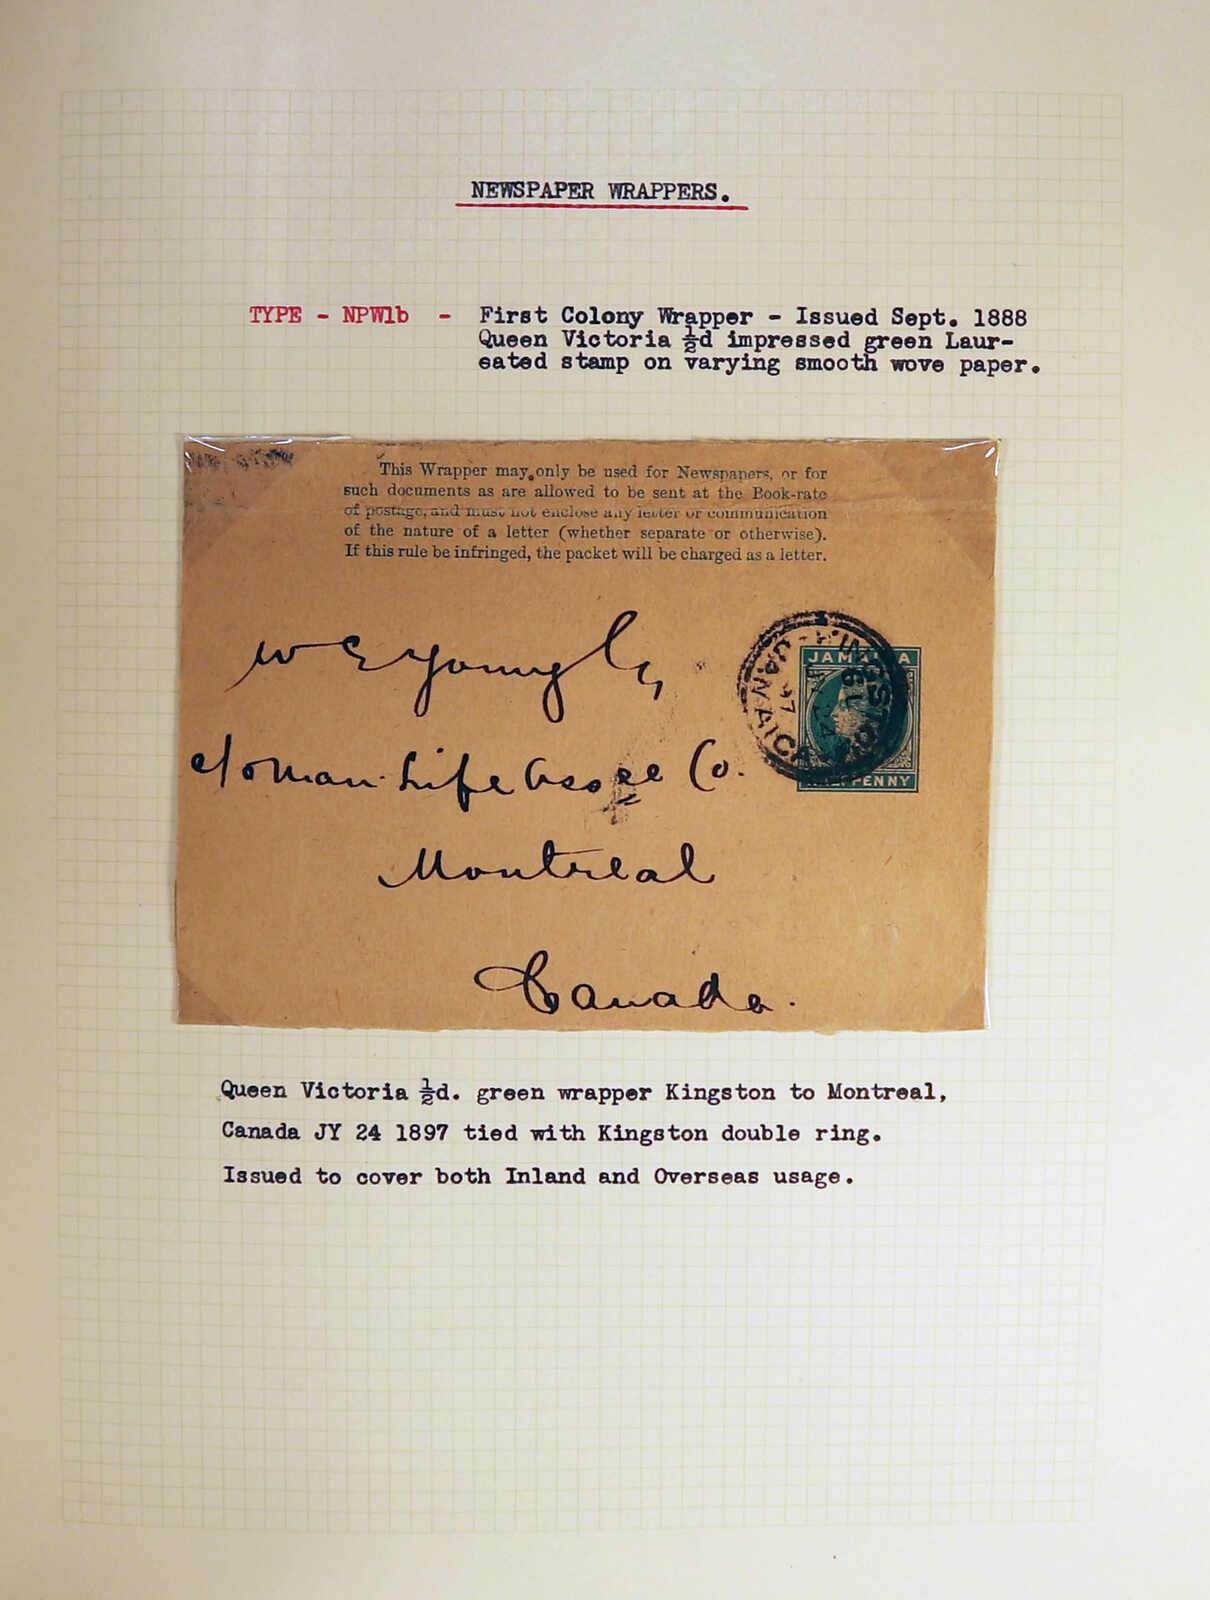 NEWSPAPER WRAPPERS.
TYPE - NPW1b - First Colony Wrapper - Issued Sept. 1888
Queen Victoria ½d impressed green Laur-
eated stamp on varying smooth wove paper.
This Wrapper may only be used for Newspapers, or for
such documents as are allowed to be sent at the Book-rate
of postage, and must not enclose any letter or communication
of the nature of a letter (whether separate or otherwise).
If this rule be infringed, the packet will be charged as a letter.
W E Young
c/o Man. Life Assce Co.
Montreal
Canada.
JAMAICA
HALFPENNY
KINGSTON
JAMAICA
97
Queen Victoria ½d. green wrapper Kingston to Montreal,
Canada JY 24 1897 tied with Kingston double ring.
Issued to cover both Inland and Overseas usage.